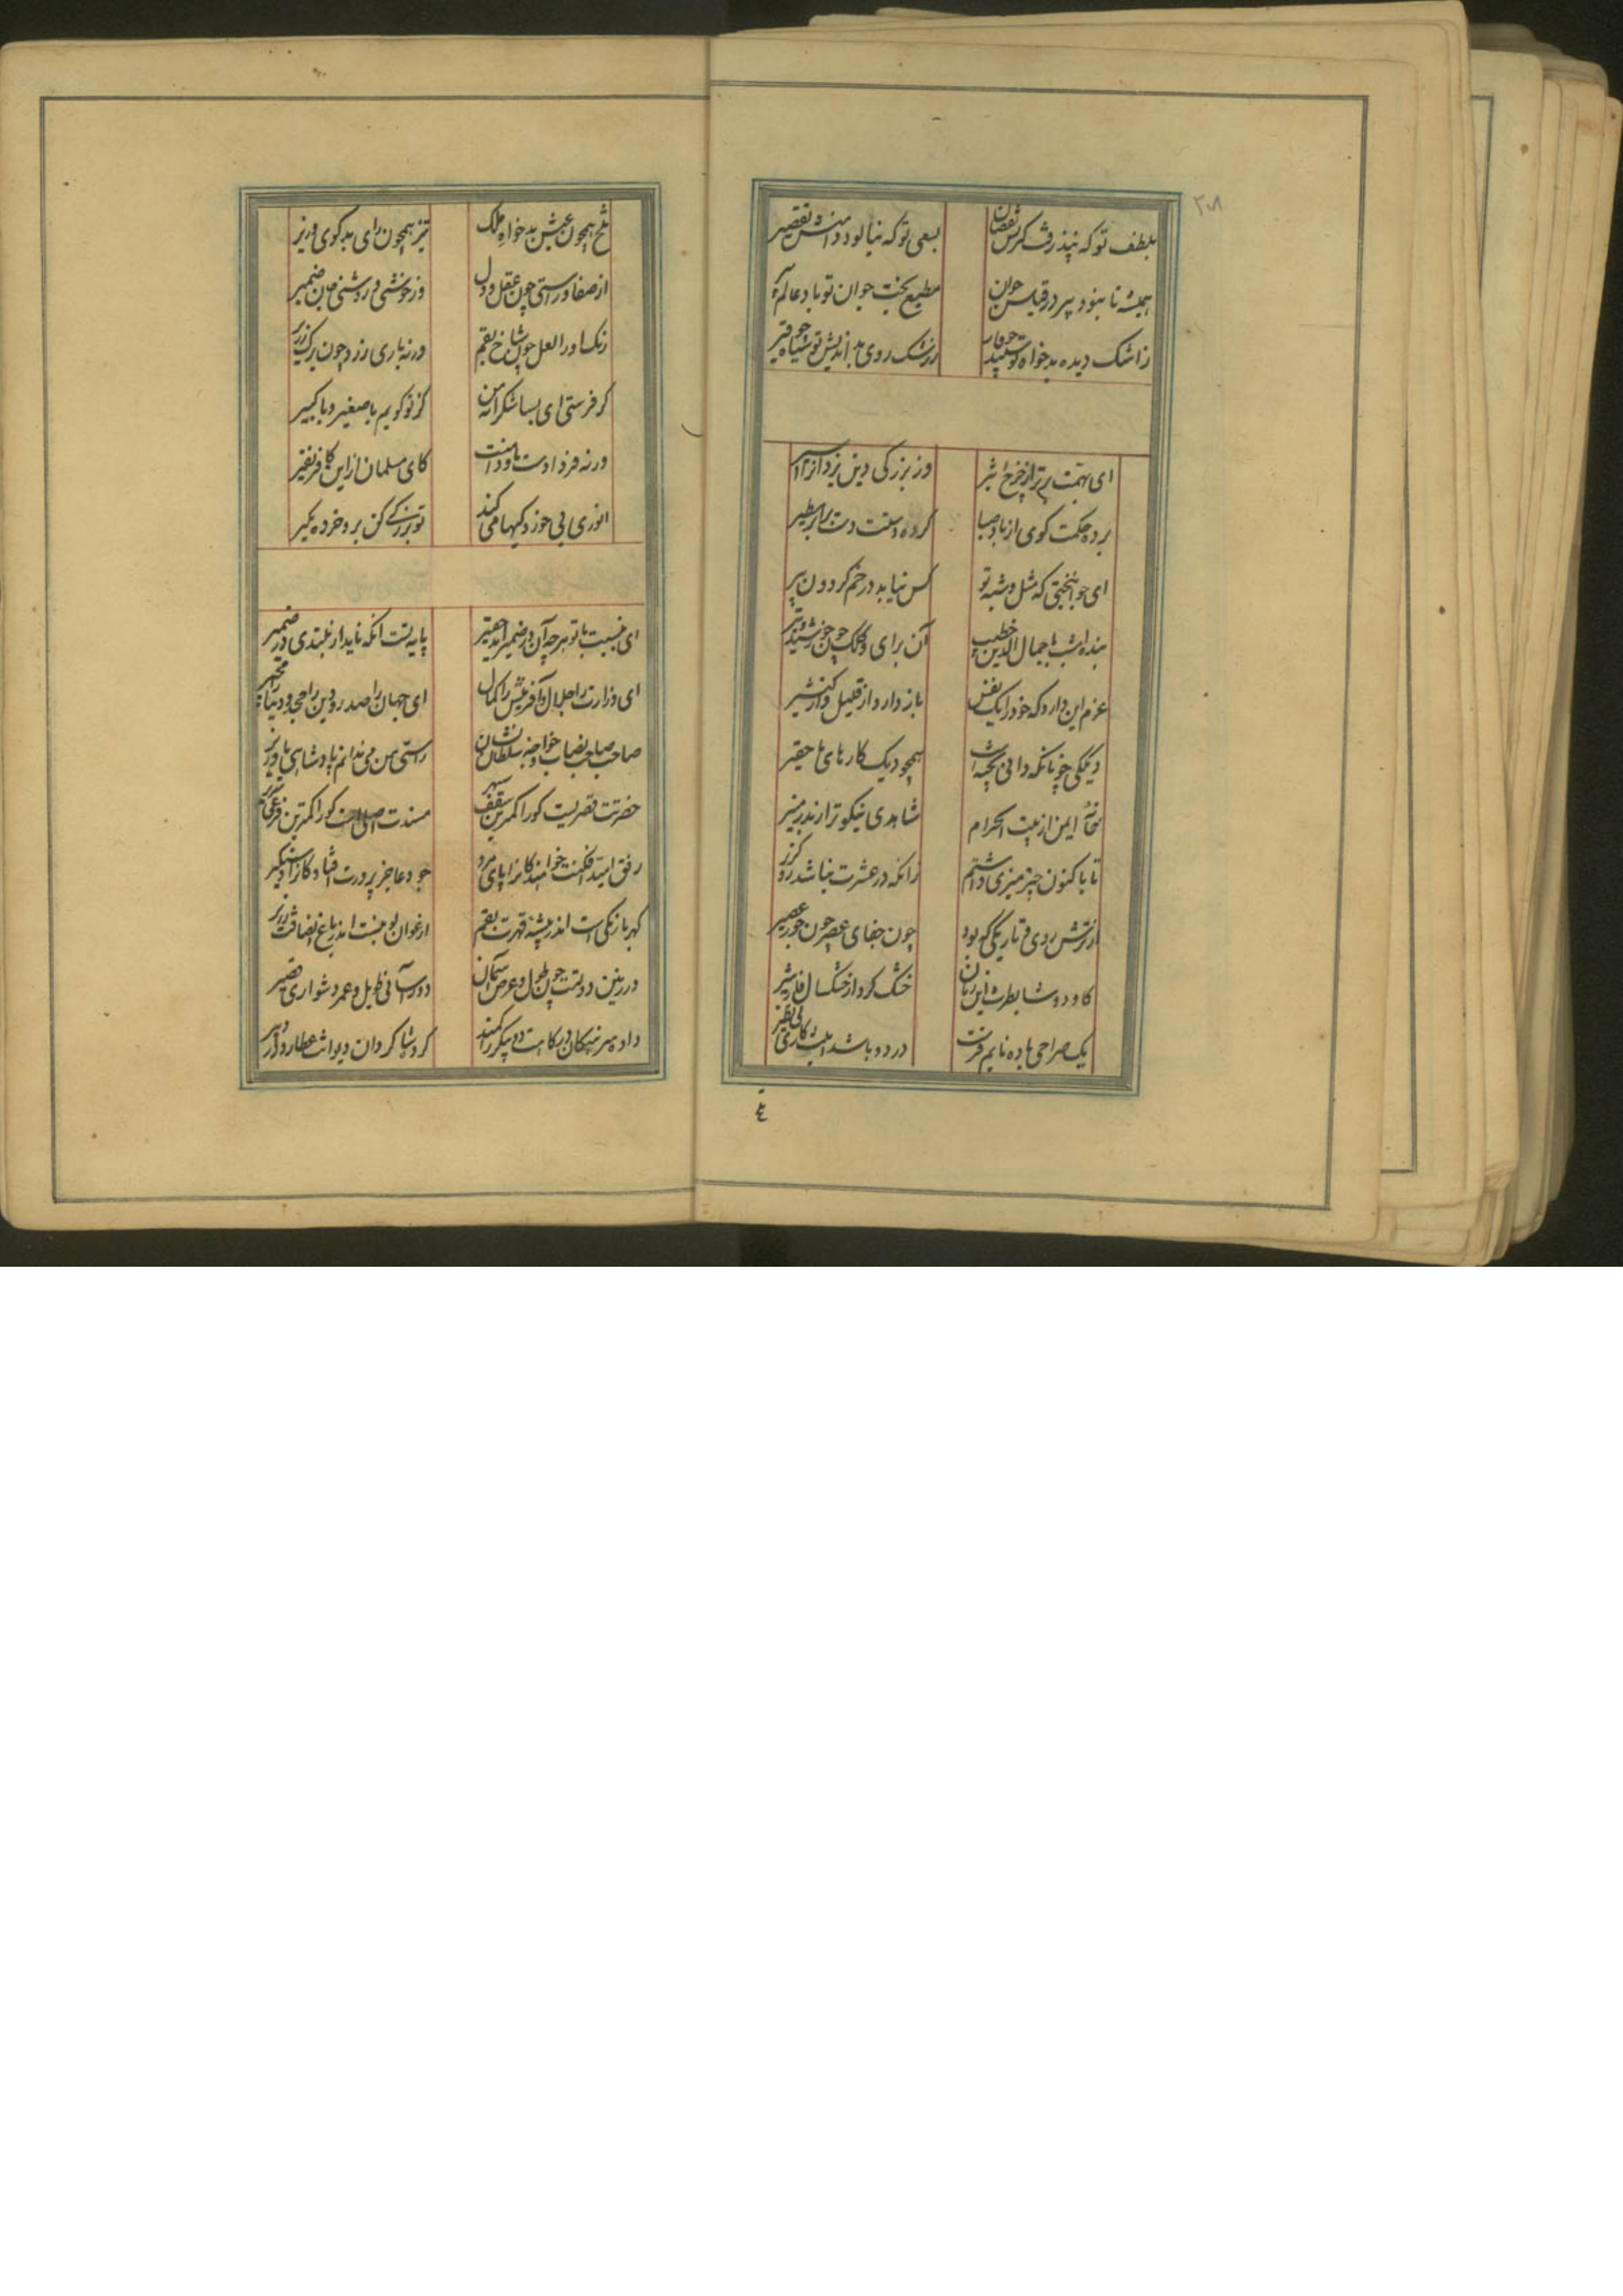 ۲۰۸
بلطف تو که نپذرفت گرش نقصان بسعی تو که نیالود دامنش تقصیر
همیشه تا بنود پیر در قیاس جوان مطیع بخت جوان تو باد عالم پیر
ز اشک دیده بدخواه تو سپید چو قار ز رشک روی بد اندیش تو سیاه چو قیر
ای بهمت برتر از چرخ اثیر وز بزرگی دین یزدان را
برده حکمت گوی از باد صبا کرده دستت دست بر ابر مطیر
ای جوانبختی که مثل و شبه تو کس نیابد در خم گردون پیر
بنده امشب با جمال الدین خطیب آن برای و کلک چون خورشید و تیر
عزم این دارد که خود را یک نفس باز دارد از قلیل و از کثیر
دیگکی چونانکه دانی پخته اند همچو دیگ کارهای ما حقیر
خانه ایمن از بیت الحرام شاهدی نیکوتر از بدر منیر
تا باکنون چیز میزی داشتم زانکه در عشرت نباشد زو گزیر
از ترش روی و تاریکی که بود چون جفای عصر چون جور عصیر
گاو دوشا بطرش این زمان خشک کرد از خشک سال فاقه شیر
یک صراحی باده مایم فرست در دو باشد اینت کاری بی نظیر
تلخ همچون عیش بدخواه ملک تیز همچون رای بدگوی وزیر
از صفا و راستی چون عقل و دل وز خوشی و روشنی جان ضمیر
رنگ او را لعل چون شاخ بقم ورنه باری زرد چون برگ زریر
گر فرستی ای بسا شکرا که من گز تو گویم با صغیر و با کبیر
ورنه فردا دست ما و دامنت کای مسلمان از این کافر نفیر
انوری بی خوردگیها می کند تو بزرگی کن برو خرده مگیر
ای بنسبت با تو هر چه آن در ضمیر آید حقیر پایه تست انکه ناید از بلندی در ضمیر
ای وزارت را جلال و آفرینش را کمال ای جهان را صدر و دین را مجد و دنیا را مجیر
صاحب صاحب نصاب خواجه سلطان نشان راستی من می ندانم پادشاهی یا وزیر
حضرتت قصریست کورا کمترین سقف سپهر مسندت اصلی است کورا کمترین فرعی
رفق امید افکنت خوانند کانرا پای مرد جود عاجز پرورت افتادکانرا دستگیر
کهربا رنگی است اندر بیشه قهرت بقم ارغوان لونیست اندر باغ انصافت زریر
در زمین دولتت چون طول و عرض آسمان دور آسانی طویل و عمر دشواری قصیر
داده میر نیکان ترکانت دو پیکر را کمند کرده شاگردان دیوانت عطارد را دبیر
٤